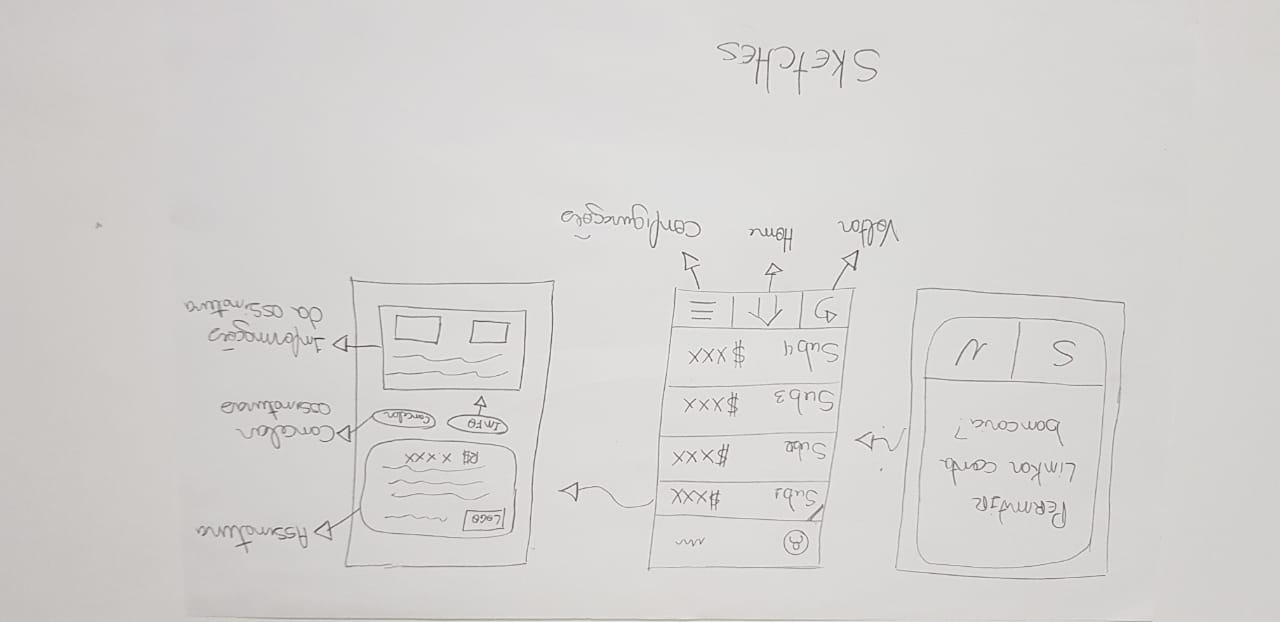 PERMITIR
Linkar conta
bancaria?
S N
Sub1 $XXX
Sub2 $XXX
Sub3 $XXX
Sub4 $XXX
Voltar
Home
Configurações
LOGO
R$ X.XXX
INFO
Cancelar
Assinatura
Cancelar
assinaturas
Informações
da assinatura
SKETCHES